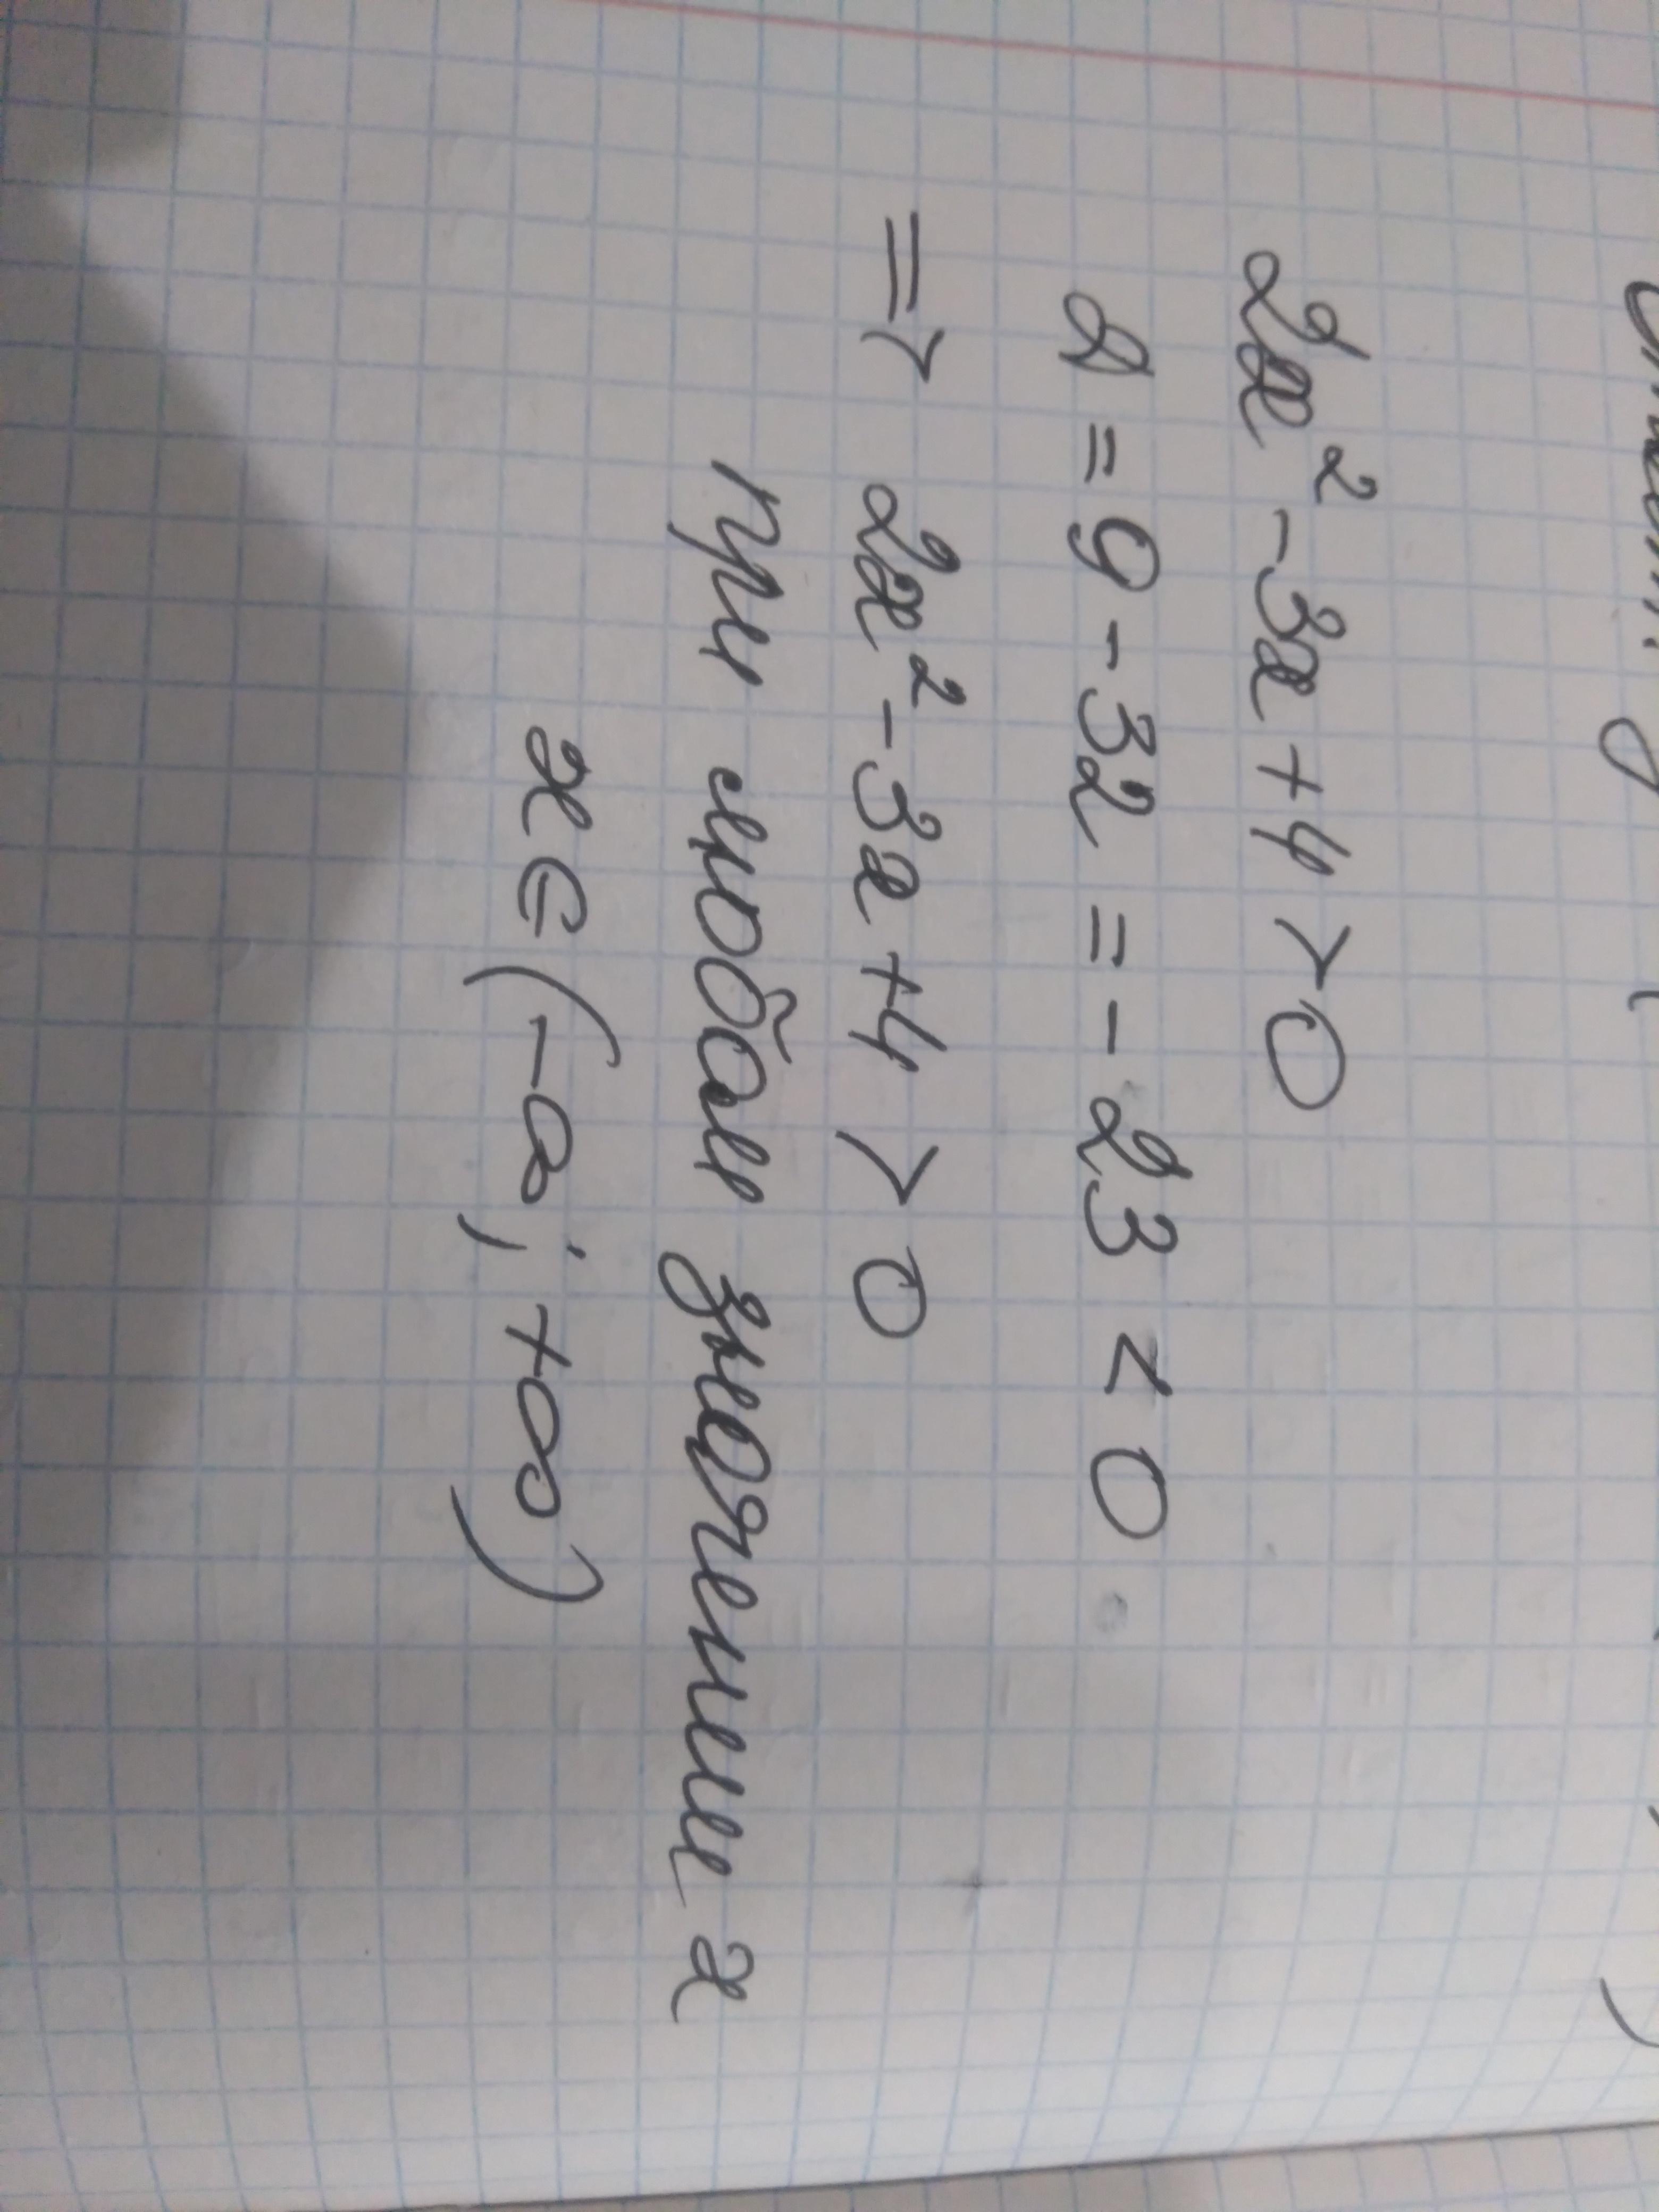 2x² - 3x + 4 > 0
D = 9 - 32 = - 23 < 0
=> 2x² - 3x + 4 > 0
при любом значении x
x ∈ (-∞; +∞)